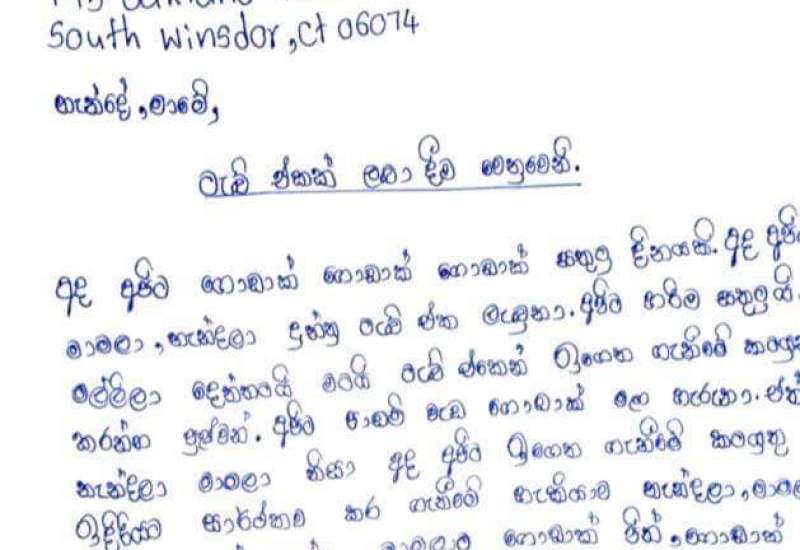 South Winsdor, Ct 06074
නැන්දේ, මාමේ,
ටැබ් එකක් ලබා දීම වෙනුවෙනි.
අද අපිට ගොඩාක් ගොඩාක් ගොඩාක් සතුටු දිනයකි. අද අපි
මාමලා, නැන්දලා දුන්නු ටැබ් එක ලැබුනා. අපිට හරිම සතුටුයි.
මල්ලිලා දෙන්නයි මටයි ටැබ් එකෙන් ඉගෙන ගැනීමේ කටයුතු
කරන්න පුළුවන්. අපිට පාඩම් වැඩ ගොඩාක් මග හැරුනා. එත්
නැන්දලා මාමලා නිසා අද අපිට ඉගෙන ගැනීමේ කටයුතු
ඉදිරියට සාර්ථකව කර ගැනීමේ හැකියාව නැන්දලා, මාමලා
මාමලාට ගොඩාක් පින්, ගොඩාක්